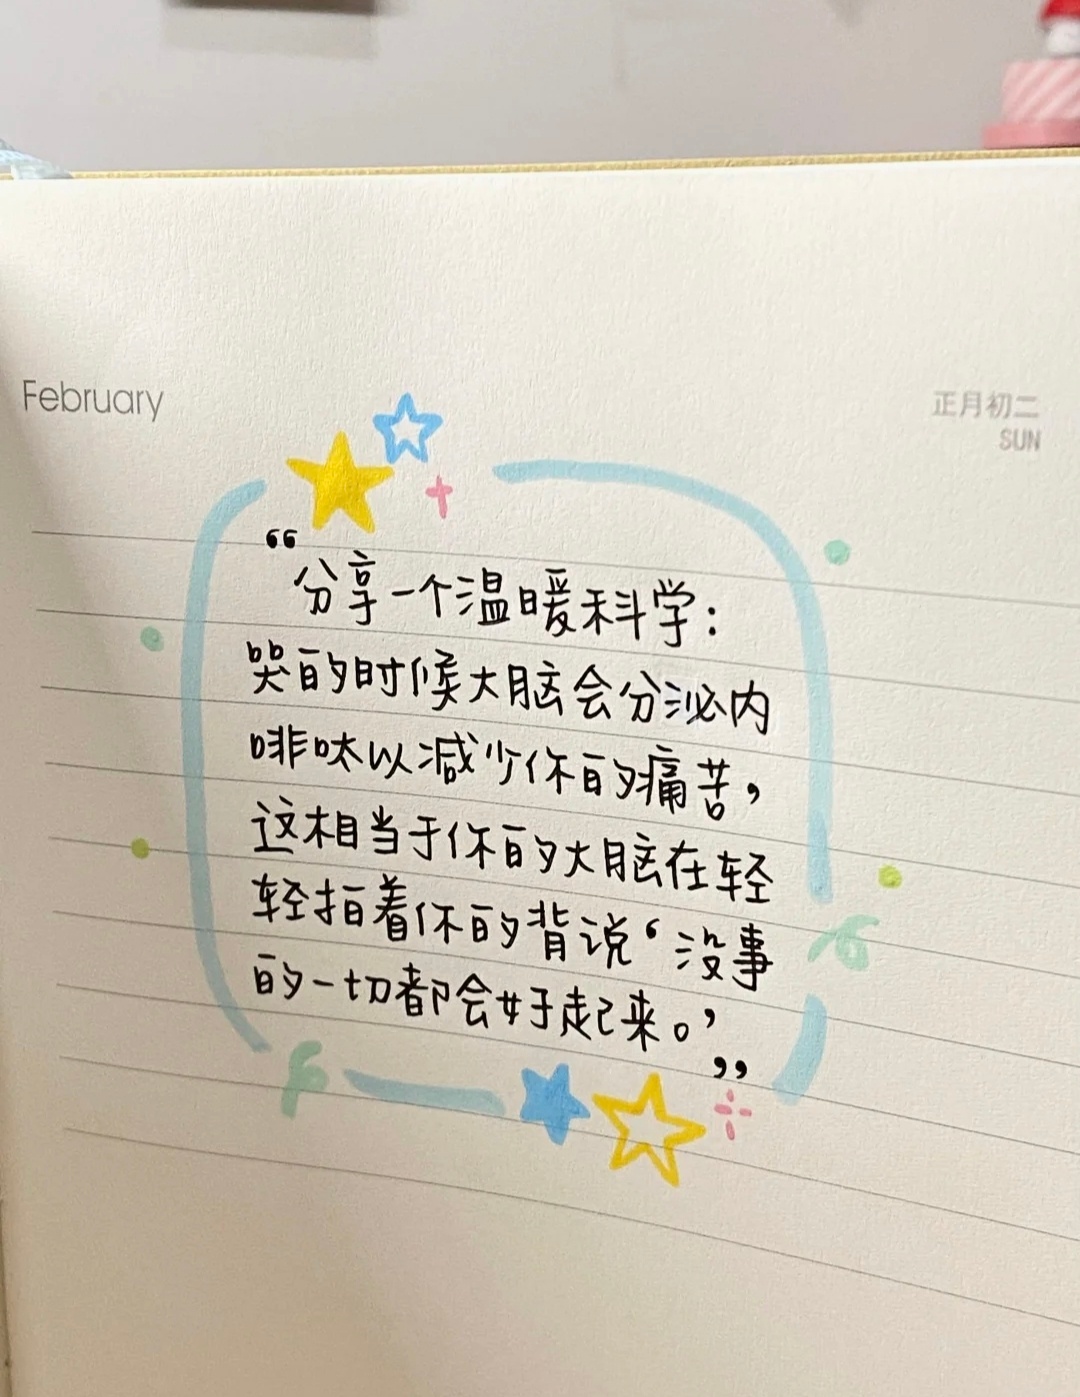 February
正月初二
SUN
“
分享一个温暖科学：
哭的时候大脑会分泌内
啡呔以减少你的痛苦，
这相当于你的大脑在轻
轻拍着你的背说‘没事
的一切都会好起来。’
”